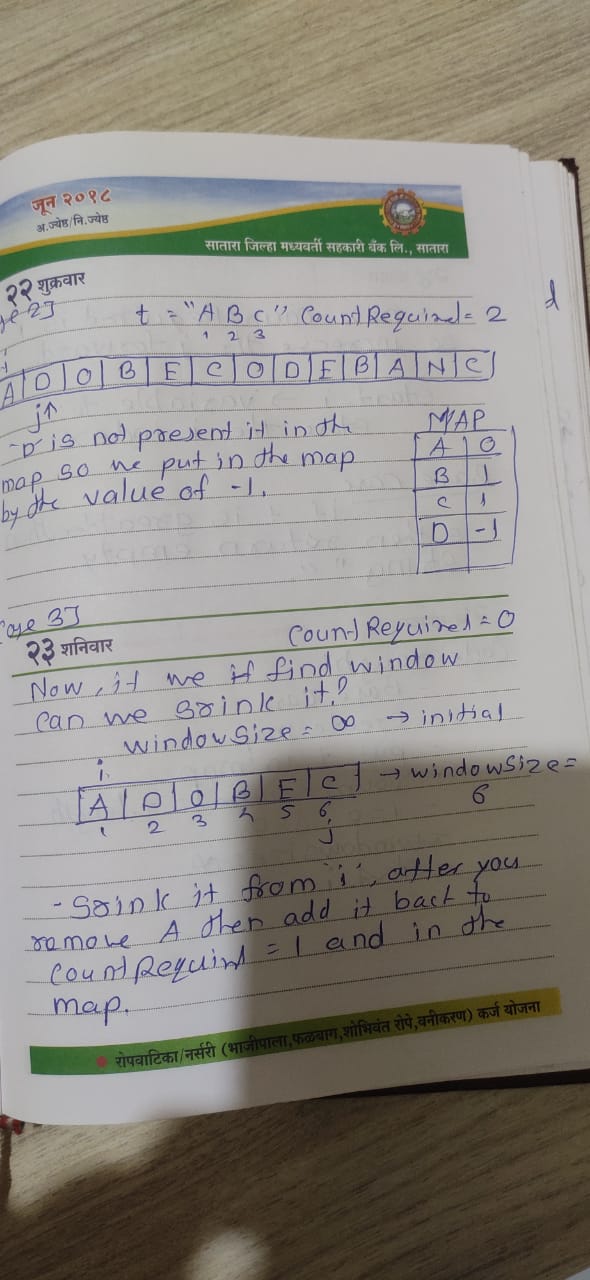 जून २०१८
अ.ज्येष्ठ/नि.ज्येष्ठ
सातारा जिल्हा मध्यवर्ती सहकारी बँक लि., सातारा
२२ शुक्रवार
se 2]
t = "A B C" CountRequired = 2
1 2 3
d
i
A D O B E C O D E B A N C
j↑
-D is not present it in the
map so we put in the map
by the value of -1.
MAP
A 0
B 1
C 1
D -1
Case 3]
२३ शनिवार
CountRequired = 0
Now, it we if find window
can we srink it?
windowSize = ∞ → initial
i
A D O B E C → windowsize =
1 2 3 4 5 6
6
j
- Srink it from i, after you
remove A then add it back to
CountRequird = 1 and in the
map.
रोपवाटिका/नर्सरी (भाजीपाला,फळबाग,शोभिवंत रोपे,वनीकरण) कर्ज योजना